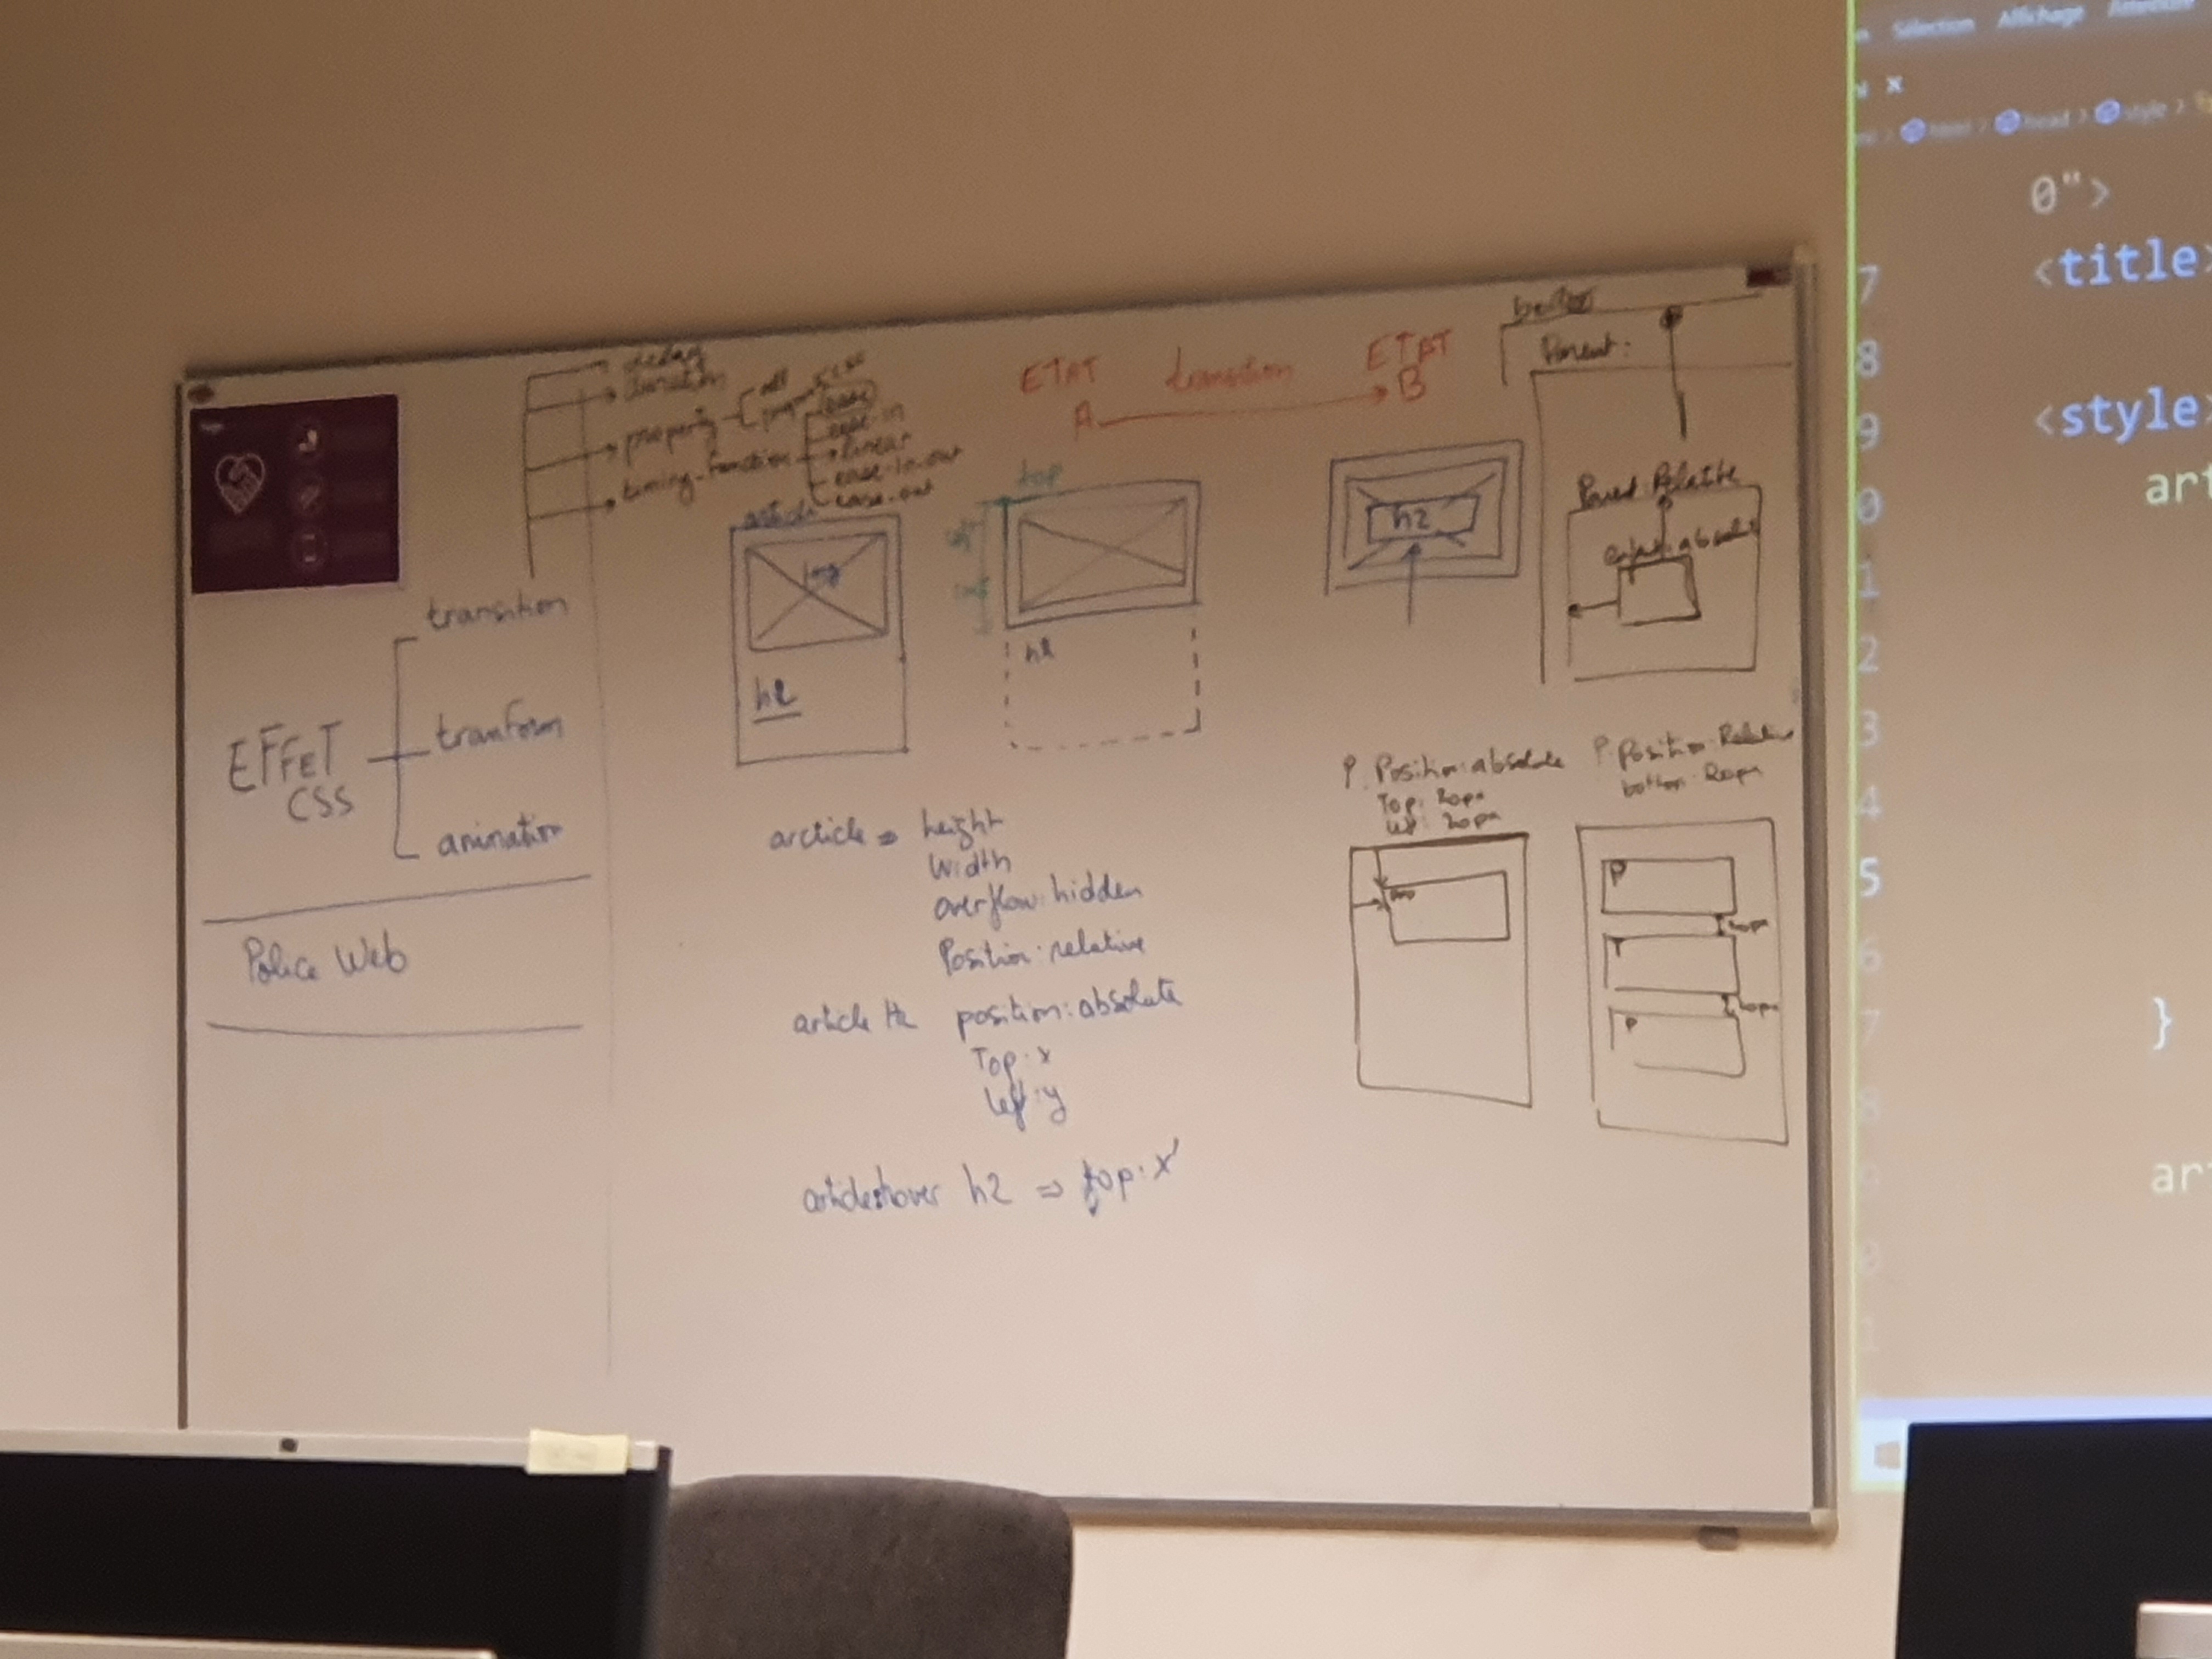 delay
duration
property
all
timing-function
ease
ease-in
linear
ease-in-out
ease-out
transition
EFFET
CSS
tranform
animation
Police Web
ETAT
A
transition
ETAT
B
article
img
h2
top
h2
h2
arcticle => height
width
overflow: hidden
Position: relative
article H2 position: absolute
Top: x
left: y
h2 => top: x'
Parent:
Parent: Relative
P. Position: absolute
Top: 20px
left: 20px
P. Position: Relative
bottom: 20px
P
20px
P
20px
P
Sélection Affichage
html > head > style >
0">
7 <title>
8
9 <style>
0
1
2
3
4
5
6
7 }
8